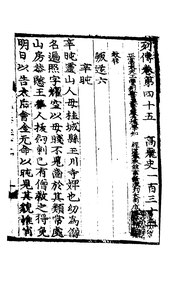 列傳卷第四十五 高麗史一百三
敎修
叛逆六
辛旽
辛旽靈山人母桂城縣玉川寺婢也幼爲僧
名遍照字耀空以母賤不見齒於其類常處
山房恭愍王夢人拔劍刺己有僧救之得免
明日以告太后會金元命以旽見其貌惟肖